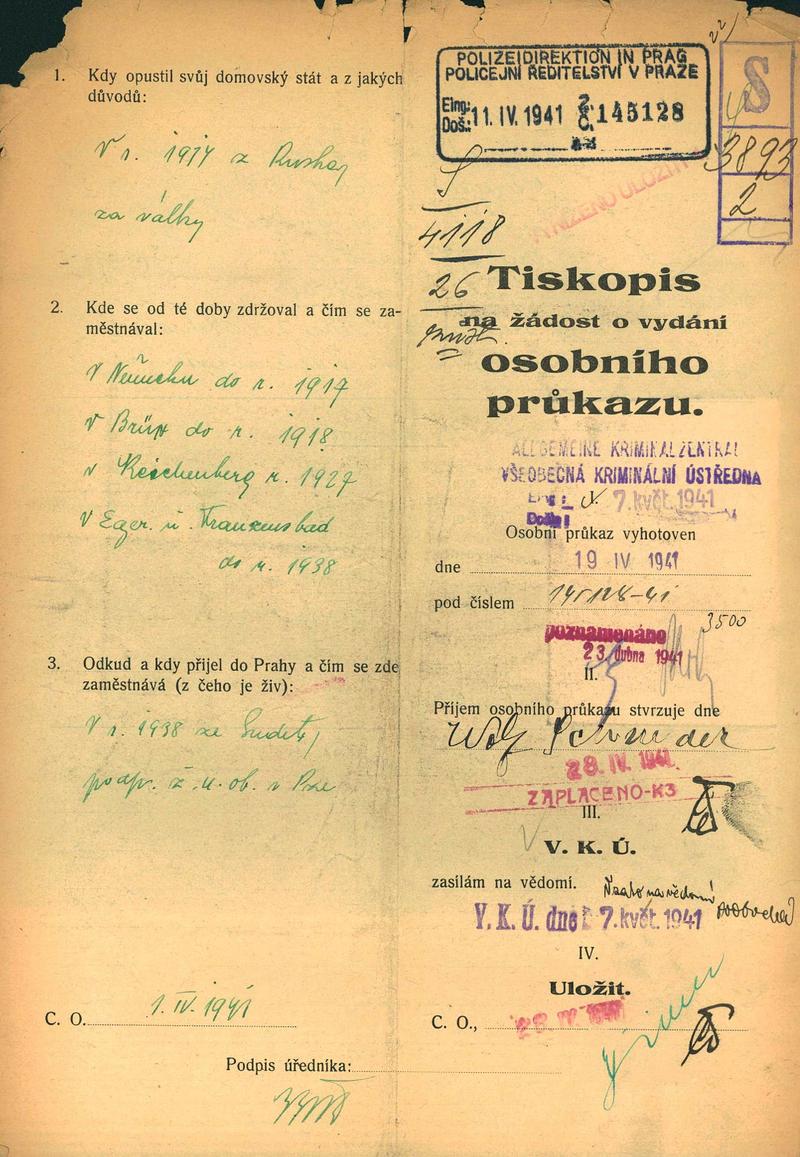 1. Kdy opustil svůj domovský stát a z jakých
důvodů:
V r. 1914 z Ruska,
za války
2. Kde se od té doby zdržoval a čím se za-
městnával:
V Německu do r. 1917
v Brüx do r. 1918
v Reichenberg r. 1927
v Eger. u. Franzensbad
do r. 1938
3. Odkud a kdy přijel do Prahy a čím se zde
zaměstnává (z čeho je živ):
V r. 1938 ze Sudet,
podp. ž. n. ob. v Praze
C. O. 1. IV. 1941
Podpis úředníka:
22
POLIZEIDIREKTION IN PRAG
POLICEJNÍ ŘEDITELSTVÍ V PRAZE
Eing.: Doš.: 11. IV. 1941 Z. Č. 145128
S
3893
2
S
4118
26
VYŘÍZENO ULOŽIT
Tiskopis
na žádost o vydání
osobního
průkazu.
ALLGEMEINE KRIMINALZENTRAL
VŠEOBECNÁ KRIMINÁLNÍ ÚSTŘEDNA
7. květ. 1941
Došlo
Osobní průkaz vyhotoven
dne 19 IV 1941
pod číslem 145128-41
3500
poznamenáno
23. dubna 1941
II.
Příjem osobního průkazu stvrzuje dne
28. IV. 1941.
ZAPLACENO-K3
III.
V. K. Ú.
zasílám na vědomí.
V. K. Ú. dne 7. květ. 1941
IV.
Uložit.
C. O., 28. IV. 1941